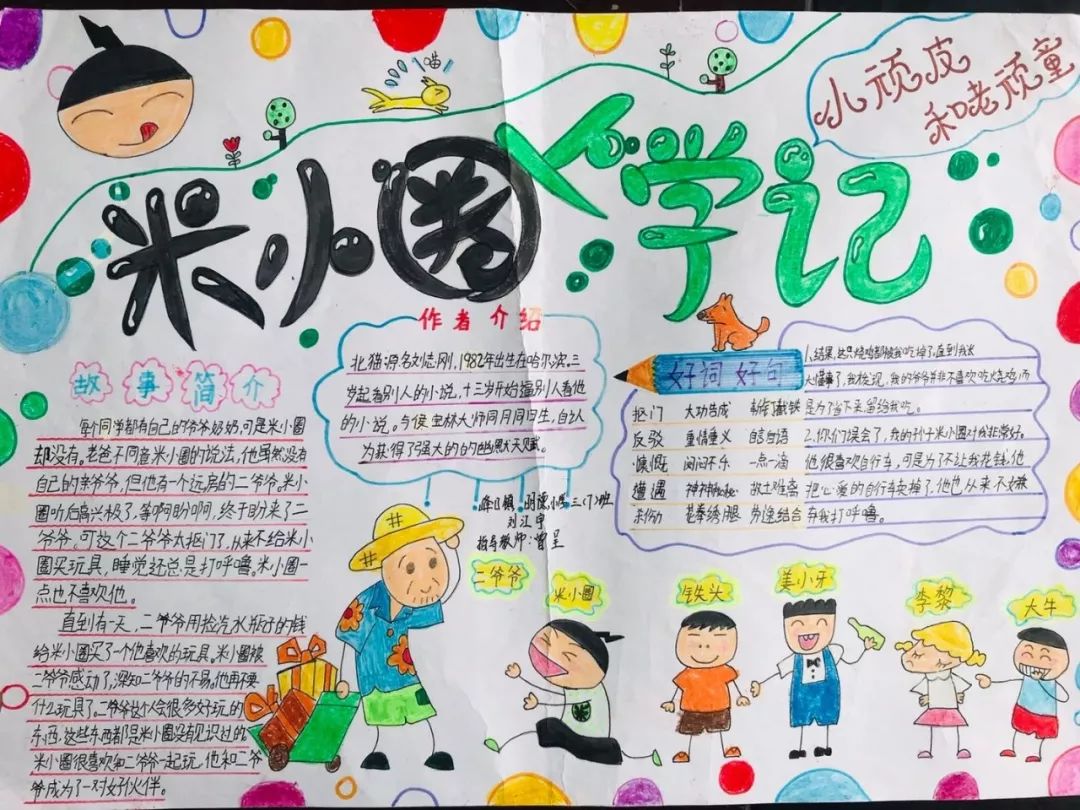 小顽皮
和老顽童
喵
米小圈上学记
作者介绍
北猫:源名刘志刚,1982年出生在哈尔滨。三
岁起看别人的小说,十三岁开始逼别人看他
的小说。与侯宝林大师同月同日生,自认
为获得了强大的的幽默天赋。
故事简介
每个同学都有自己的爷爷奶奶,可是米小圈
却没有。老爸不同意米小圈的说法,他虽然没有
自己的亲爷爷,但他有个远房的二爷爷。米小
圈听后高兴极了,等啊盼啊,终于盼来了二
爷爷,可这个二爷爷太抠门了,从来不给米小
圈买玩具,睡觉还总是打呼噜。米小圈一
点也不喜欢他。
直到有一天,二爷爷用捡汽水瓶子的钱
给米小圈买了一个他喜欢的玩具。米小圈被
二爷爷感动了,深知二爷爷的不易。他再不要
什么玩具了。二爷爷这个人会很多好玩的
东西,这些东西都是米小圈没有见识过的
米小圈很喜欢和二爷爷一起玩,他和二爷
爷成为了一对好伙伴。
好词好句
抠门 大功告成 斩钉截铁
反驳 重情重义 自言自语
慷慨 闷闷不乐 一点一滴
遭遇 故土难离
花拳绣腿 劳逸结合
1、结果,这只烧鸡都被我吃掉了。直到我长
大懂事了,我发现,我的爷爷并非不喜欢吃烧鸡,而
是为了省下来留给我吃。
2、你们误会了,我的孙子米小圈对我非常好。
他很喜欢自行车,可是为了不让我花钱,他
把心爱的自行车卖掉了,他也从来不嫌
弃我打呼噜。
明德小学三(7)班
刘江宇
指导教师:曾呈
二爷爷
米小圈
铁头
姜小牙
李黎
大牛